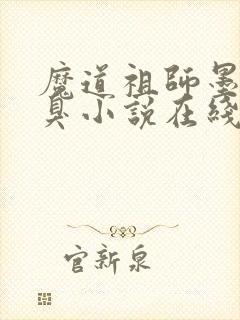 魔道祖師墨
臭小說在綫
官新泉